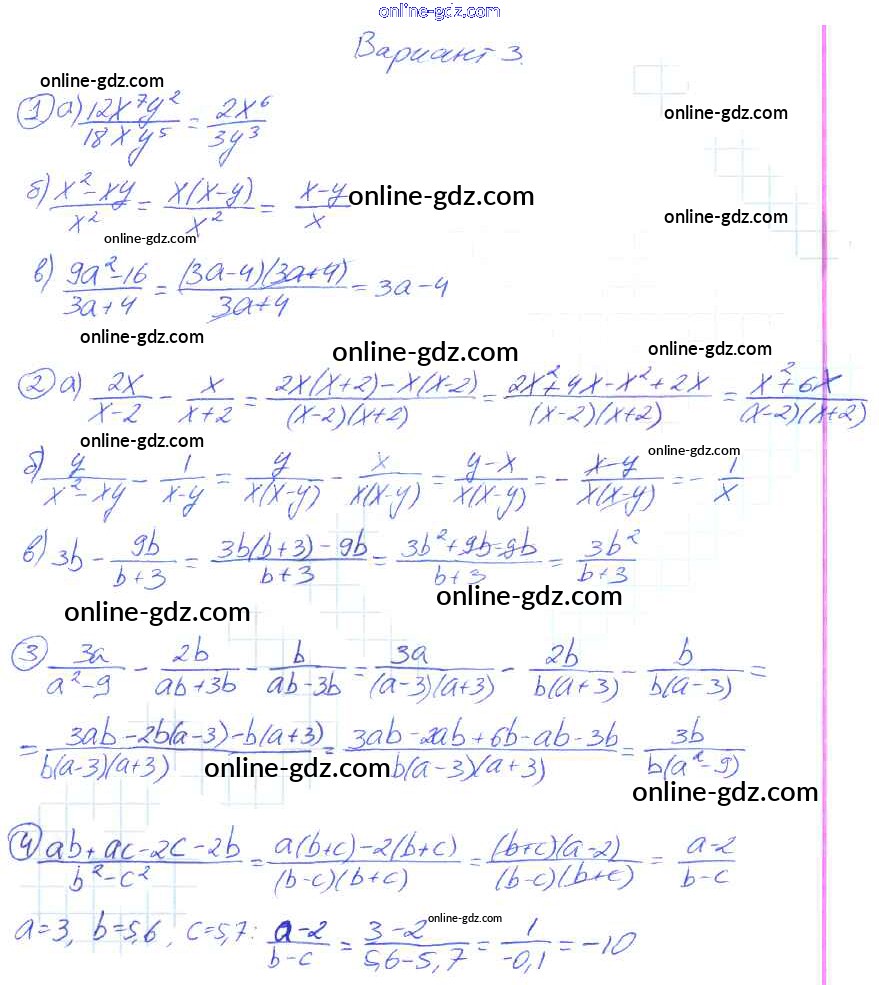 online-gdz.com
Вариант 3.
online-gdz.com
① а) 12x⁷y²/18xy⁵ = 2x⁶/3y³
online-gdz.com
б) x²-xy/x² = x(x-y)/x² = x-y/x
online-gdz.com
online-gdz.com
online-gdz.com
в) 9a²-16/3a+4 = (3a-4)(3a+4)/3a+4 = 3a-4
online-gdz.com
online-gdz.com
online-gdz.com
② а) 2x/x-2 - x/x+2 = 2x(x+2)-x(x-2)/(x-2)(x+2) = 2x²+4x-x²+2x/(x-2)(x+2) = x²+6x/(x-2)(x+2)
online-gdz.com
online-gdz.com
б) y/x²-xy - 1/x-y = y/x(x-y) - x/x(x-y) = y-x/x(x-y) = - x-y/x(x-y) = - 1/x
в) 3b - 9b/b+3 = 3b(b+3)-9b/b+3 = 3b²+9b-9b/b+3 = 3b²/b+3
online-gdz.com
online-gdz.com
③ 3a/a²-9 - 2b/ab+3b - b/ab-3b = 3a/(a-3)(a+3) - 2b/b(a+3) - b/b(a-3) =
= 3ab-2b(a-3)-b(a+3)/b(a-3)(a+3) = 3ab-2ab+6b-ab-3b/b(a-3)(a+3) = 3b/b(a²-9)
online-gdz.com
online-gdz.com
④ ab+ac-2c-2b/b²-c² = a(b+c)-2(b+c)/(b-c)(b+c) = (b+c)(a-2)/(b-c)(b+c) = a-2/b-c
online-gdz.com
a=3, b=5,6, c=5,7: a-2/b-c = 3-2/5,6-5,7 = 1/-0,1 = -10